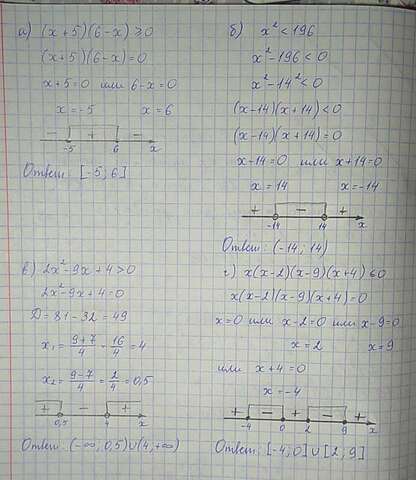 а) (x+5)(6-x) ⩾ 0
(x+5)(6-x)=0
x+5=0 или 6-x=0
x=-5 x=6
- + -
-5 6 x
Ответ: [-5; 6]
б) x² < 196
x²-196 < 0
x²-14² < 0
(x-14)(x+14) < 0
(x-14)(x+14) = 0
x-14=0 или x+14=0
x=14 x=-14
+ - +
-14 14 x
Ответ: (-14; 14)
в) 2x²-9x+4>0
2x²-9x+4=0
D=81-32=49
x₁ = (9+7)/4 = 16/4 = 4
x₂ = (9-7)/4 = 2/4 = 0,5
+ - +
0,5 4 x
Ответ: (-∞; 0,5)∪(4; +∞)
г) x(x-2)(x-9)(x+4) ⩽ 0
x(x-2)(x-9)(x+4)=0
x=0 или x-2=0 или x-9=0
x=2 x=9
или x+4=0
x=-4
+ - + - +
-4 0 2 9 x
Ответ: [-4; 0]∪[2; 9]